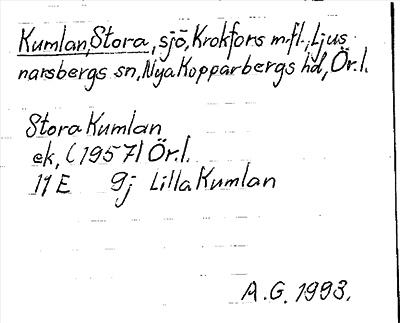 Kumlan, Stora, sjö, Krokfors m.fl., Ljus
narsbergs sn, Nya Kopparbergs hd, Ör.l.
Stora Kumlan
ek, (1957) Ör.l.
11 E 9j Lilla Kumlan
A.G. 1993.